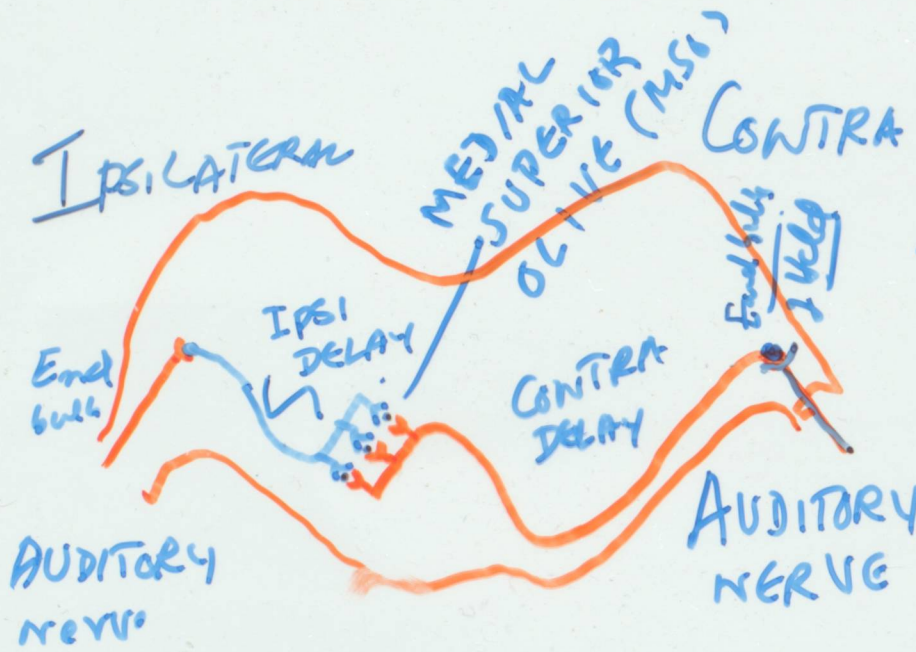 IPSILATERAL
MEDIAL
SUPERIOR
OLIVE (MSO)
CONTRA
End bulbs
of Held
IPSI
DELAY
End
bulb
CONTRA
DELAY
AUDITORY
nerve
AUDITORY
NERVE